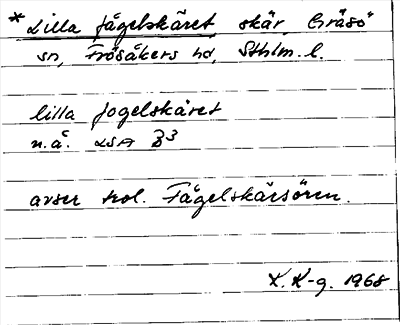 * Lilla Fågelskäret, skär, Gräsö
sn, Frösåkers hd, Sthlm. l.
lilla fogelskäret
n.å. LSA B3
avser trol. Fågelskärsören.
K. K-g. 1968